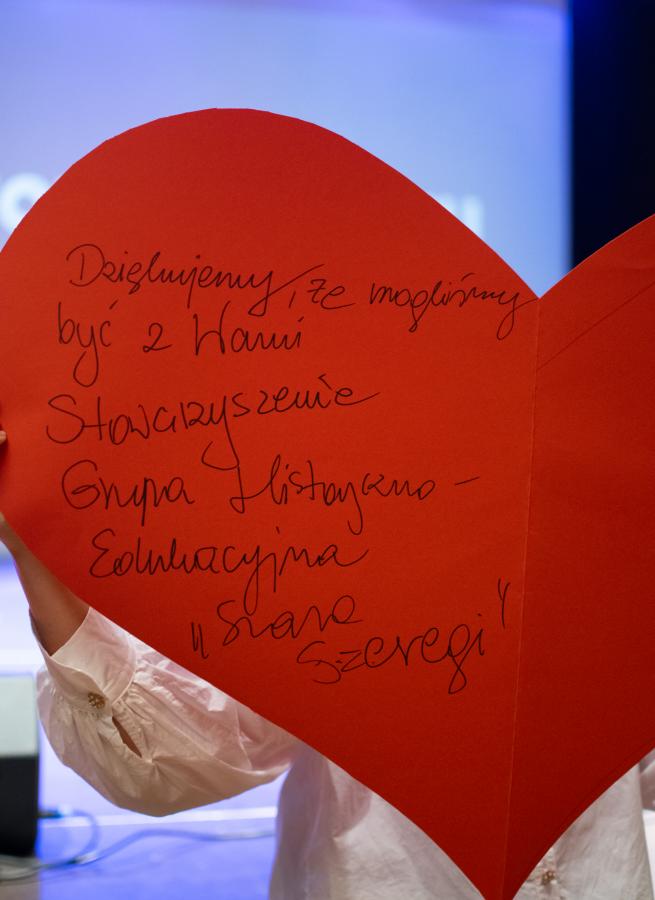 Dziękujemy, że mogliśmy
być z Wami
Stowarzyszenie
Grupa Historyczno -
Edukacyjna
„Szare
Szeregi"